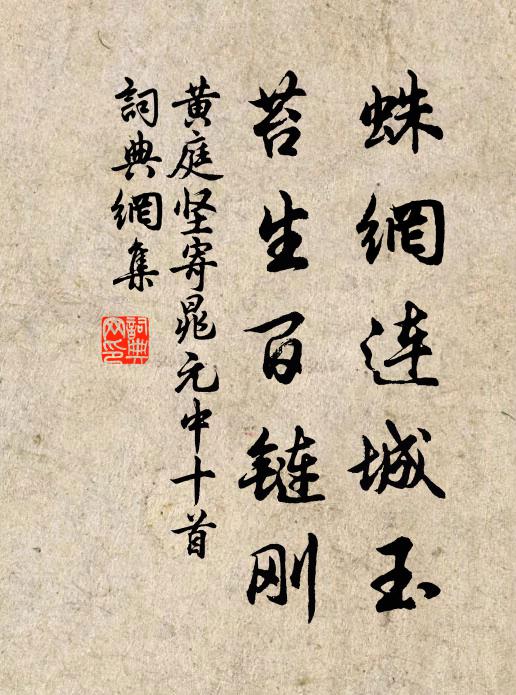 蛛網连城玉
苔生百鏈刚
黄庭坚寄晁元中十首
詞典網集
詞典
网印